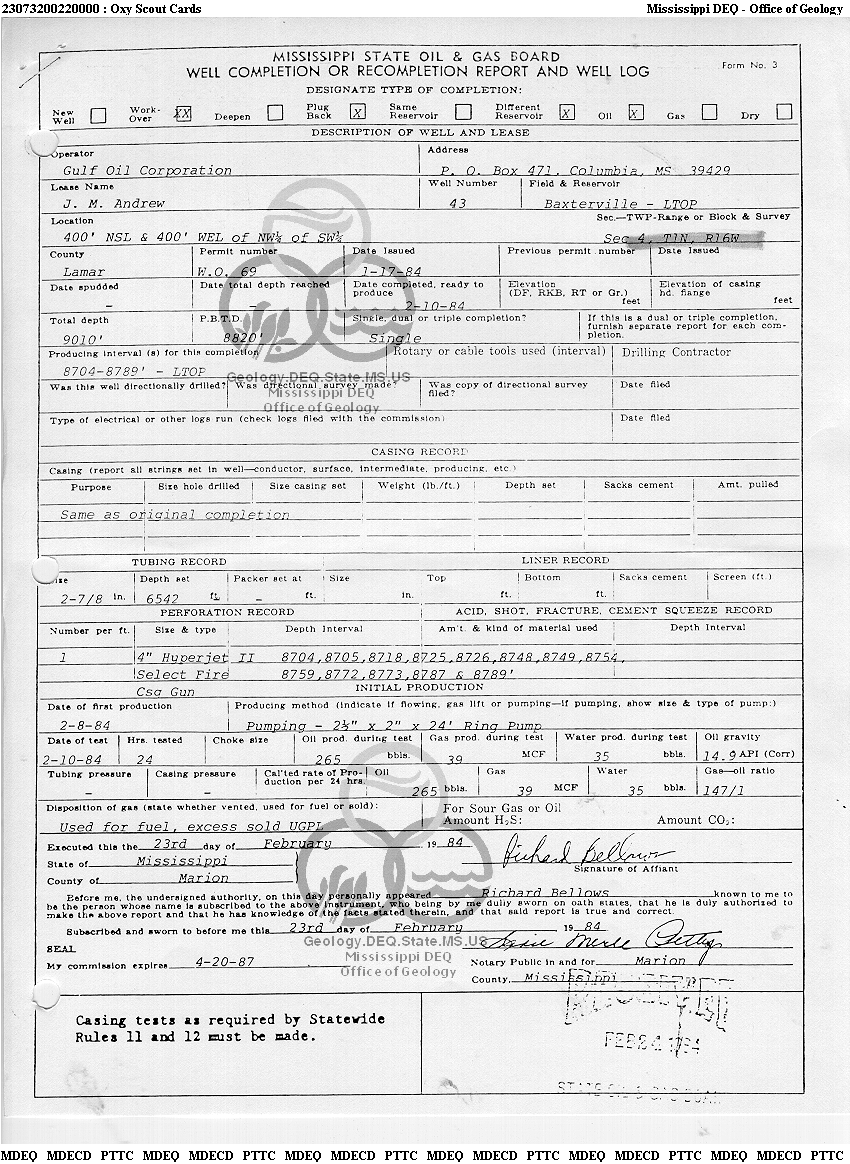 23073200220000 : Oxy Scout Cards Mississippi DEQ - Office of Geology
MISSISSIPPI STATE OIL & GAS BOARD
WELL COMPLETION OR RECOMPLETION REPORT AND WELL LOG Form No. 3
DESIGNATE TYPE OF COMPLETION:
New Well Work-Over XX Deepen Plug Back X Same Reservoir Different Reservoir X Oil X Gas Dry
DESCRIPTION OF WELL AND LEASE
Operator Address
Gulf Oil Corporation P. O. Box 471, Columbia, MS 39429
Lease Name Well Number Field & Reservoir
J. M. Andrew 43 Baxterville - LTOP
Location Sec.—TWP-Range or Block & Survey
400' NSL & 400' WEL of NW¼ of SW¼ Sec 4, T1N, R16W
County Permit number Date Issued Previous permit number Date Issued
Lamar W.O. 69 1-17-84
Date spudded Date total depth reached Date completed, ready to produce Elevation (DF, RKB, RT or Gr.) feet Elevation of casing hd. flange feet
- - 2-10-84
Total depth P.B.T.D. Single, dual or triple completion? If this is a dual or triple completion, furnish separate report for each completion.
9010' 8820' Single
Producing interval (s) for this completion Rotary or cable tools used (interval) Drilling Contractor
8704-8789' - LTOP
Geology.DEQ.State.MS.US
Was this well directionally drilled? Was directional survey made? Was copy of directional survey filed? Date filed
Mississippi DEQ
Office of Geology
Type of electrical or other logs run (check logs filed with the commission) Date filed
CASING RECORD
Casing (report all strings set in well—conductor, surface, intermediate, producing, etc.)
Purpose Size hole drilled Size casing set Weight (lb./ft.) Depth set Sacks cement Amt. pulled
Same as original completion
TUBING RECORD LINER RECORD
Size Depth set Packer set at Size Top Bottom Sacks cement Screen (ft.)
2-7/8 in. 6542 ft. - ft. in. ft. ft.
PERFORATION RECORD ACID, SHOT, FRACTURE, CEMENT SQUEEZE RECORD
Number per ft. Size & type Depth Interval Am't. & kind of material used Depth Interval
1 4" Hyperjet II 8704,8705,8718,8725,8726,8748,8749,8754,
Select Fire 8759,8772,8773,8787 & 8789'
Csg Gun INITIAL PRODUCTION
Date of first production Producing method (indicate if flowing, gas lift or pumping—if pumping, show size & type of pump:)
2-8-84 Pumping - 2½" x 2" x 24' Ring Pump
Date of test Hrs. tested Choke size Oil prod. during test Gas prod. during test Water prod. during test Oil gravity
2-10-84 24 265 bbls. 39 MCF 35 bbls. 14.9 API (Corr)
Tubing pressure Casing pressure Cal'ted rate of Production per 24 hrs. Oil Gas Water Gas—oil ratio
- - 265 bbls. 39 MCF 35 bbls. 147/1
Disposition of gas (state whether vented, used for fuel or sold): For Sour Gas or Oil
Amount H2S: Amount CO2:
Used for fuel, excess sold UGPL
Executed this the 23rd day of February, 19 84 Richard Bellows
State of Mississippi Signature of Affiant
County of Marion
Before me, the undersigned authority, on this day personally appeared Richard Bellows known to me to
be the person whose name is subscribed to the above instrument, who being by me duly sworn on oath states, that he is duly authorized to
make the above report and that he has knowledge of the facts stated therein, and that said report is true and correct.
Subscribed and sworn to before me this 23rd day of February 19 84
Geology.DEQ.State.MS.US
SEAL Merle
Mississippi DEQ
My commission expires 4-20-87 Notary Public in and for Marion
Office of Geology
County, Mississippi
Casing tests as required by Statewide
Rules 11 and 12 must be made.
FEB 24 1984
MDEQ MDECD PTTC MDEQ MDECD PTTC MDEQ MDECD PTTC MDEQ MDECD PTTC MDEQ MDECD PTTC MDEQ MDECD PTTC